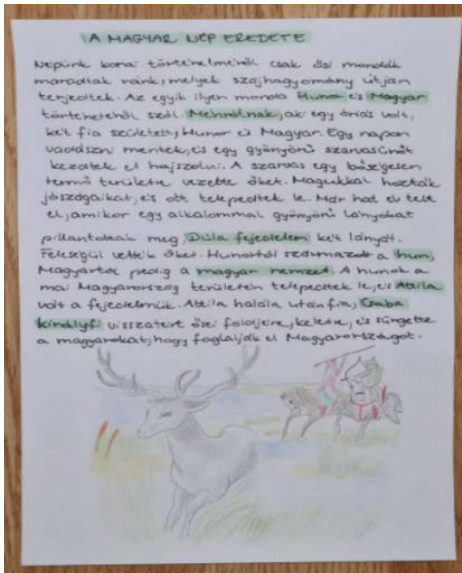 A MAGYAR NÉP EREDETE
Népünk korai történelméről csak ősi mondák
maradtak ránk, melyek szájhagyomány útján
terjedtek. Az egyik ilyen monda Hunor és Magyar
történetéről szól. Ménrótnak, aki egy óriás volt,
két fia született, Hunor és Magyar. Egy napon
vadászni mentek, és egy gyönyörű szarvasünőt
kezdtek el hajszolni. A szarvas egy bőségesen
termő területre vezette őket. Magukkal hozták
jószágaikat, és ott telepedtek le. Már hat év telt
el, amikor egy alkalommal gyönyörű lányokat
pillantottak meg, Dúla fejedelem két lányát.
Feleségül vették őket. Hunortól származott a hun,
Magyartól pedig a magyar nemzet. A hunok a
mai Magyarország területén telepedtek le, és Attila
volt a fejedelmük. Attila halála után fia, Csaba
királyfi visszatért ősei földjére, keletre, és sürgette
a magyarokat, hogy foglalják el Magyarországot.